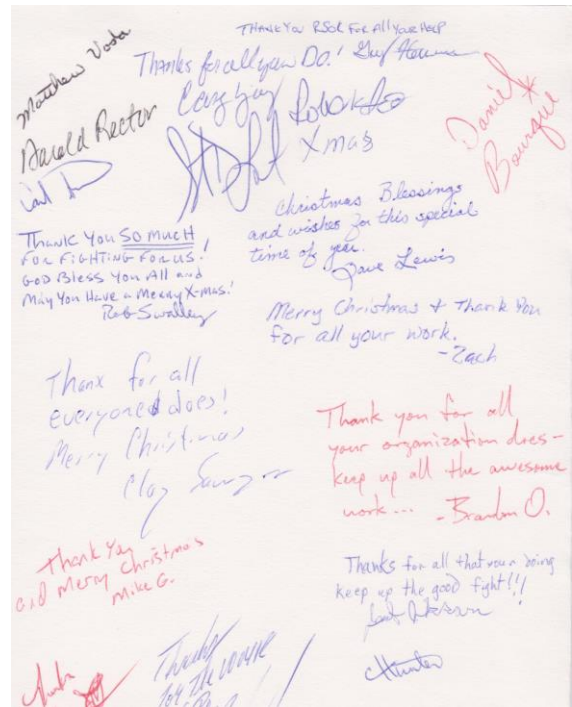 Matthew Voda
Harold Rector
THANK YOU RSOL FOR ALL YOUR HELP
Thanks for all you DO!
Xmas
Daniel
Bourque
Christmas Blessings
and wishes for this special
time of year.
Dave Lewis
THANK YOU SO MUCH
FOR FIGHTING FOR US!
GOD BLESS YOU ALL AND
MAY YOU HAVE A MERRY X-MAS!
Rob Swalley
Merry Christmas + Thank You
for all your work.
-Zach
Thanx for all
everyone does!
Merry Christmas
Clay
Thank you for all
your organization does-
keep up all the awesome
work... - Brandon O.
Thank You
and Merry Christmas
Mike G.
Thanks for all that your doing
keep up the good fight!!!
CHunter
Thanks
for the